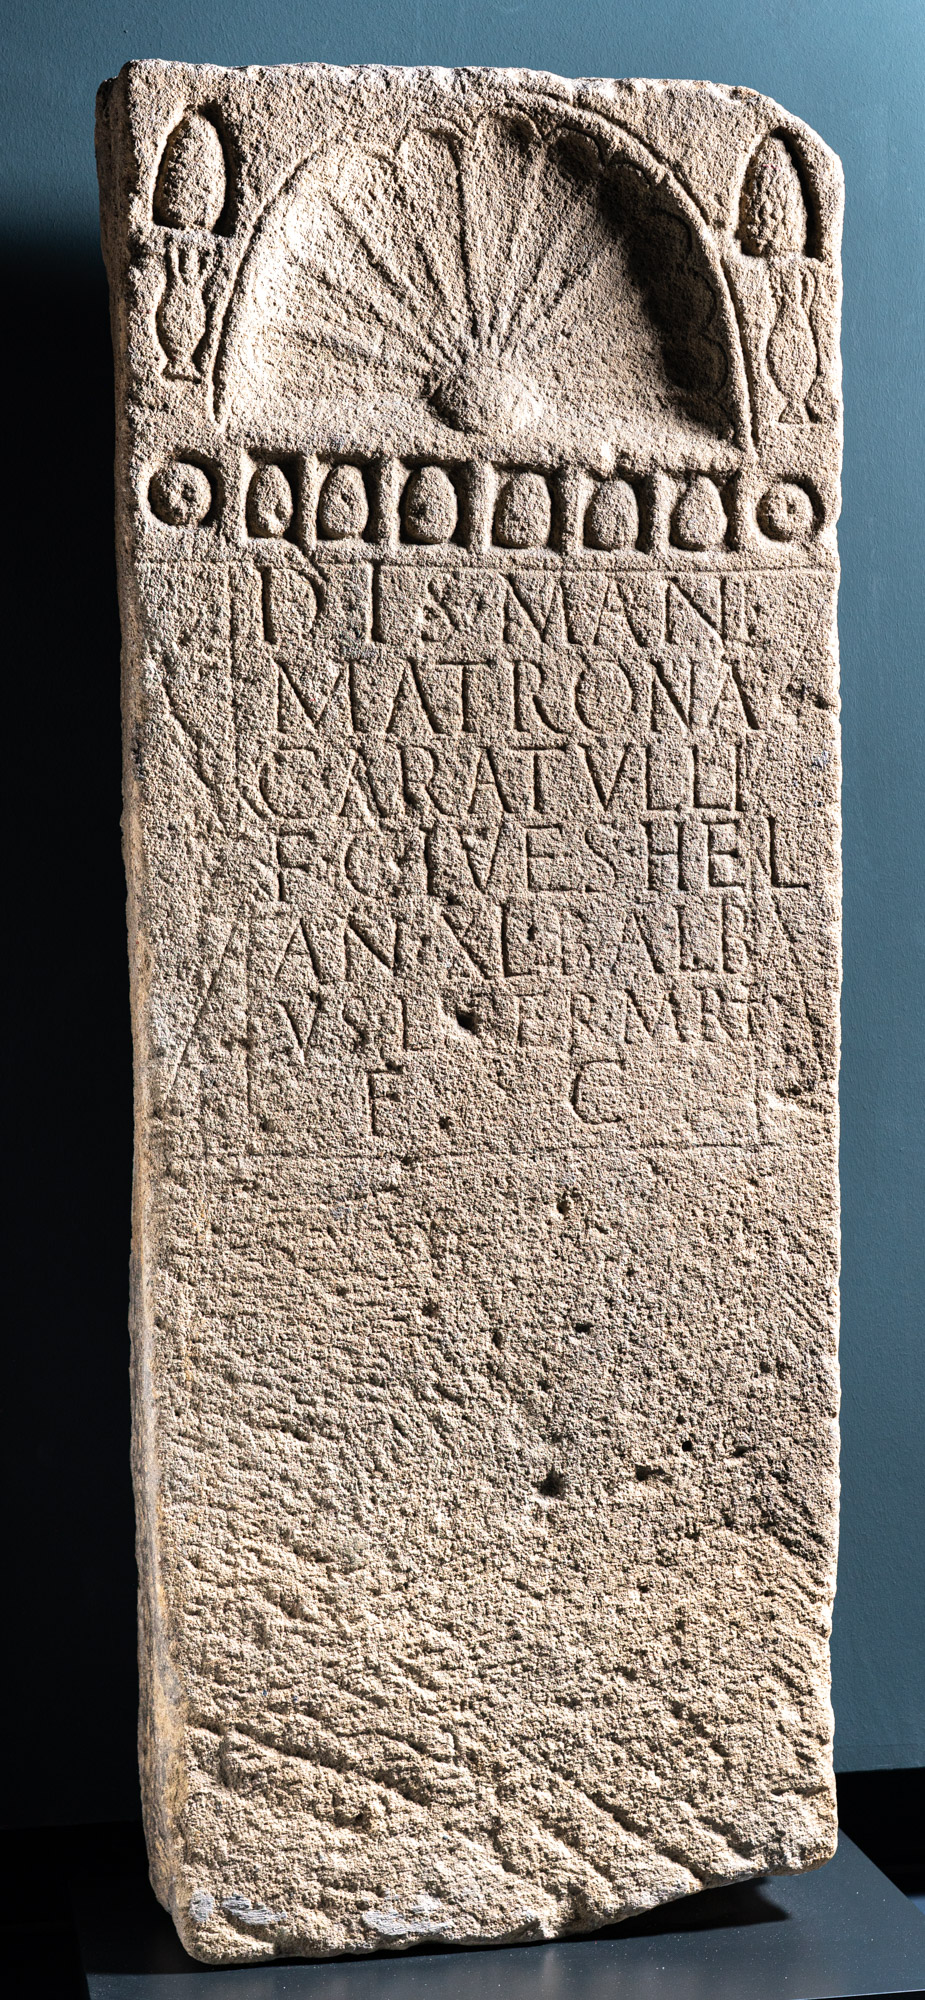 DIS·MANI
MATRONA
CARATVLLI
F·CIVES·HEL
ANN XL IALB
VS L SER MRI
F. C